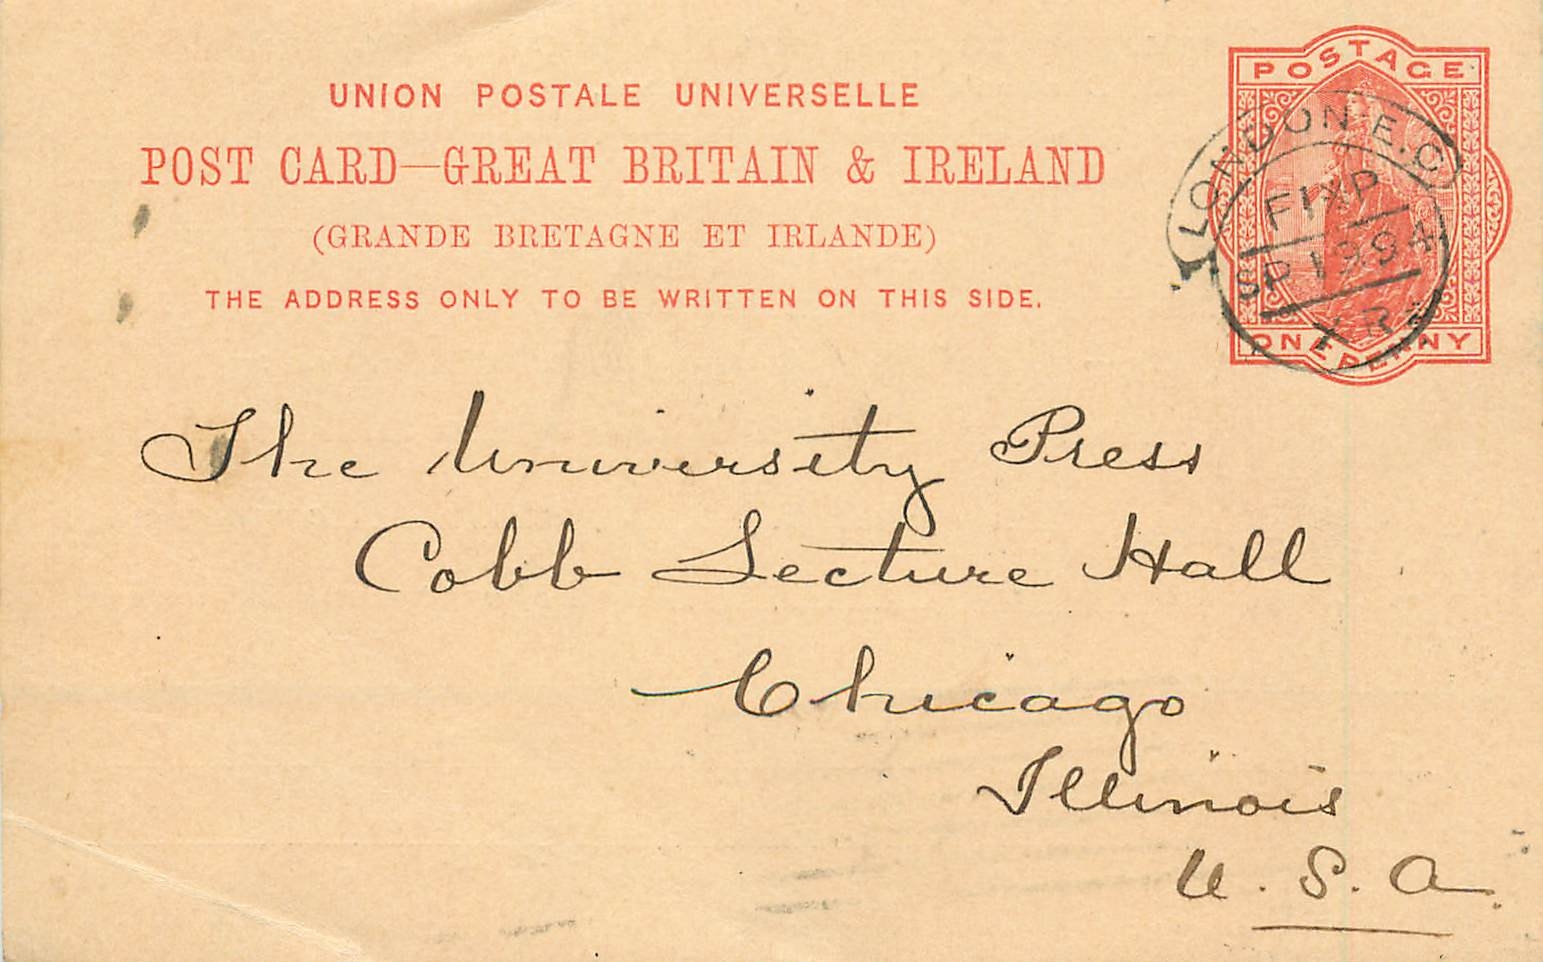 UNION POSTALE UNIVERSELLE
POST CARD—GREAT BRITAIN & IRELAND
(GRANDE BRETAGNE ET IRLANDE)
THE ADDRESS ONLY TO BE WRITTEN ON THIS SIDE.
POSTAGE
ONE PENNY
LONDON·E.C
FIXP
SP 19 94
XR
The University Press
Cobb Lecture Hall
Chicago
Illinois
U. S. A.